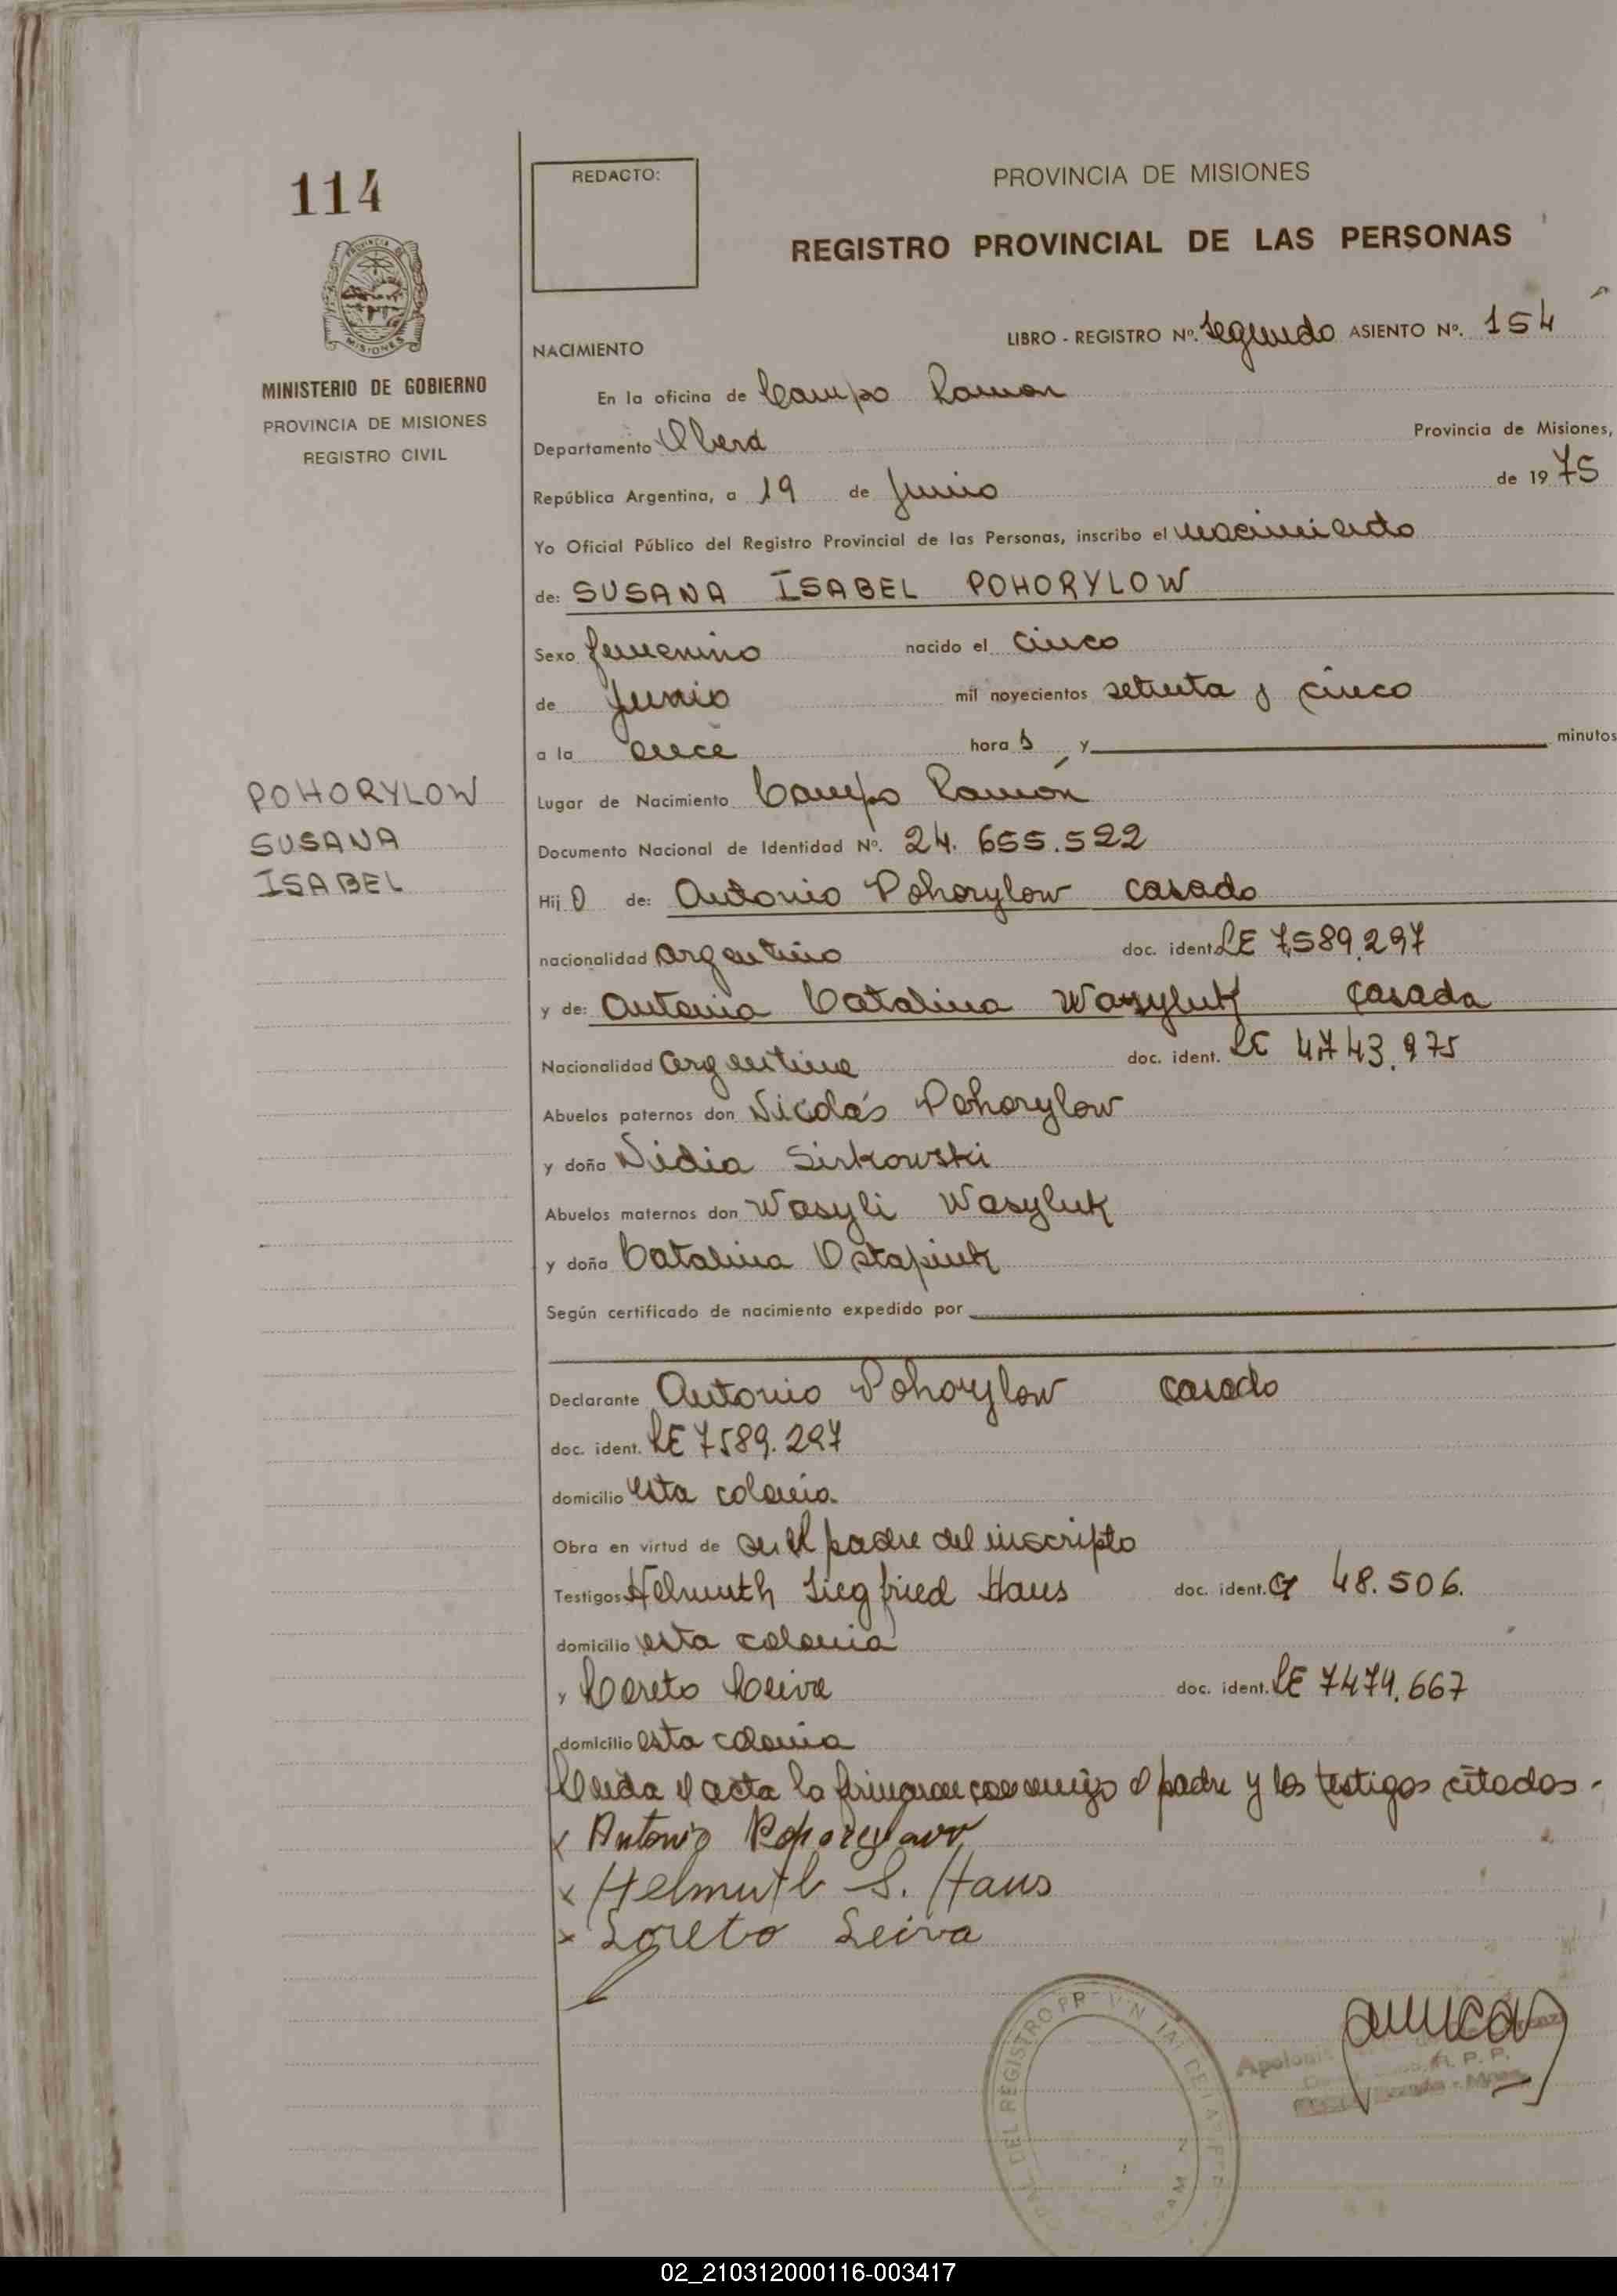 114
REDACTO:
PROVINCIA DE MISIONES
REGISTRO PROVINCIAL DE LAS PERSONAS
MISIONES
MINISTERIO DE GOBIERNO
PROVINCIA DE MISIONES
REGISTRO CIVIL
LIBRO - REGISTRO Nº. Segundo ASIENTO Nº. 154
NACIMIENTO
En la oficina de Campo Ramon
Departamento Oberá Provincia de Misiones,
República Argentina, a 19 de Junio de 1975
Yo Oficial Público del Registro Provincial de las Personas, inscribo el nacimiento
de: SUSANA ISABEL POHORYLOW
Sexo femenino nacido el cinco
de Junio mil novecientos setenta y cinco
a la once hora s y minutos
POHORYLOW
SUSANA
ISABEL
Lugar de Nacimiento Campo Ramón
Documento Nacional de Identidad Nº. 24.655.522
Hij o de: Antonio Pohorylow casado
nacionalidad argentino doc. ident. LE 7.589.297
y de: Antonia Catalina Wasyluk casada
Nacionalidad argentina doc. ident. LC 4.743.975
Abuelos paternos don Nicolás Pohorylow
y doña Nidia Sirkowski
Abuelos maternos don Wasyli Wasyluk
y doña Catalina Ostapiuk
Según certificado de nacimiento expedido por
Declarante Antonio Pohorylow casado
doc. ident. LE 7589.297
domicilio esta colonia
Obra en virtud de ser el padre del inscripto
Testigos Helmuth Siegfried Haus doc. ident. CI 48.506.
domicilio esta colonia
y Loreto Leiva doc. ident. LE 7474.667
domicilio esta colonia
Leida el acta la firmaron conmigo el padre y los testigos citados.
x Antonio Pohorylow
x Helmuth S. Haus
x Loreto Leiva
DEL REGISTRO
R. P. P.
02_210312000116-003417